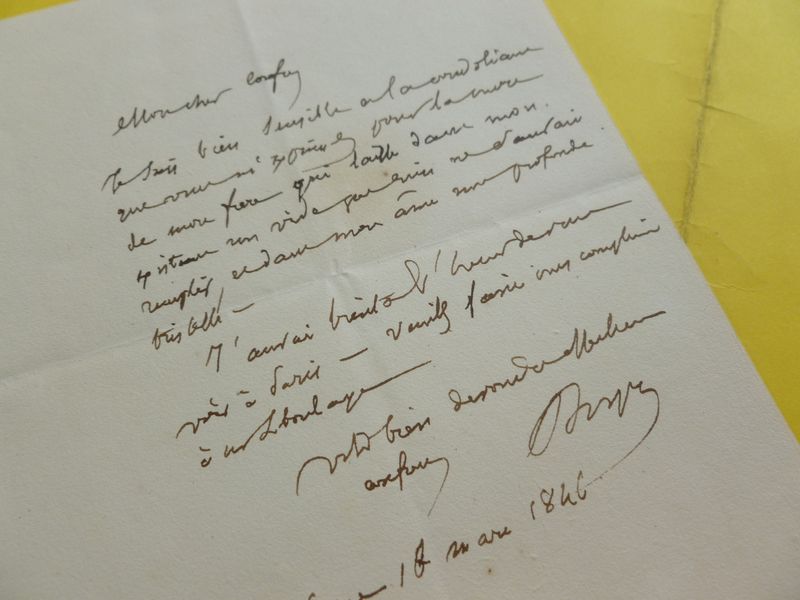 Mon cher confrère
Je suis bien sensible à la condoléance
que vous m'exprimez pour la mort
de mon frère qui laisse dans mon
existence un vide que rien ne saurait
remplir, et dans mon âme une profonde
tristesse —
J'aurai bientôt l'honneur de vous
voir à Paris — veuillez faire mes complimens
à
Votre bien dévoué et affectionné
confrère
18 mars 1846